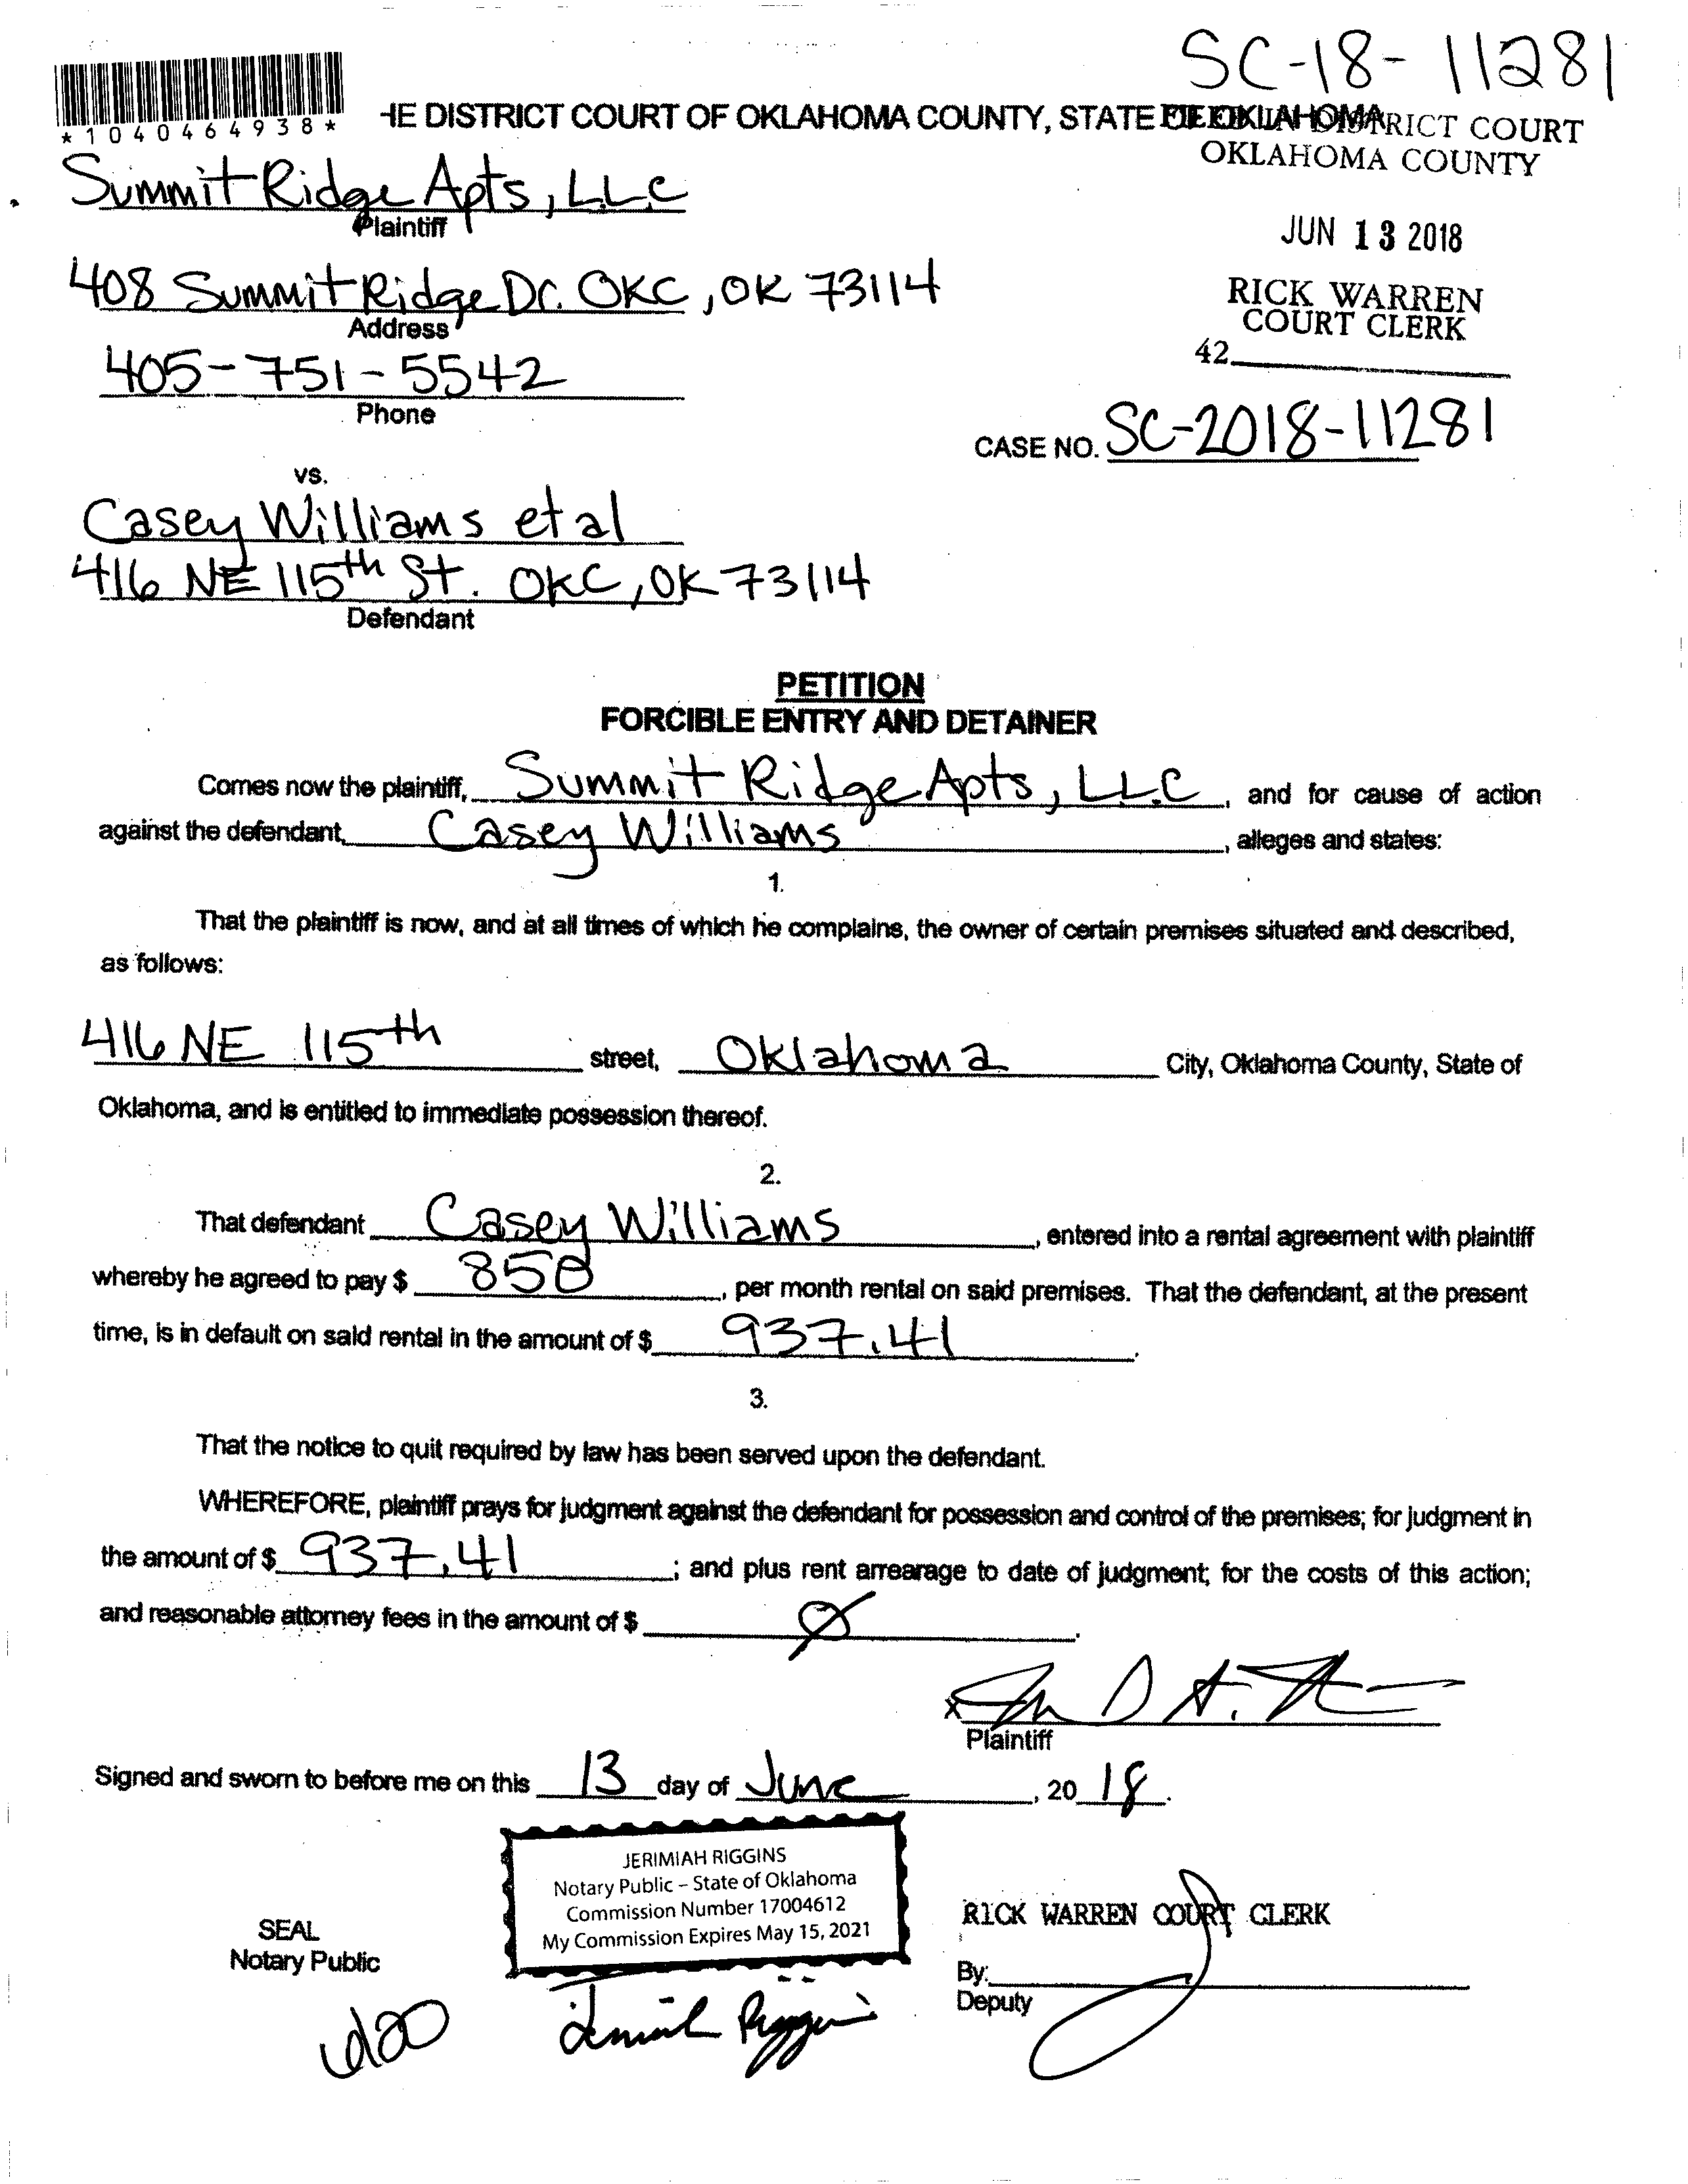 SC-18-11281
*1040464938*
HE DISTRICT COURT OF OKLAHOMA COUNTY, STATE OF OKLAHOMA
FILED IN DISTRICT COURT
OKLAHOMA COUNTY
Summit Ridge Apts, LLC
Plaintiff
JUN 13 2018
408 Summit Ridge Dr. OKC, OK 73114
Address
RICK WARREN
COURT CLERK
42
405-751-5542
Phone
CASE NO. SC-2018-11281
vs.
Casey Williams et al
416 NE 115th St. OKC, OK 73114
Defendant
PETITION
FORCIBLE ENTRY AND DETAINER
Comes now the plaintiff, Summit Ridge Apts, LLC, and for cause of action
against the defendant, Casey Williams, alleges and states:
1.
That the plaintiff is now, and at all times of which he complains, the owner of certain premises situated and described,
as follows:
416 NE 115th street, Oklahoma City, Oklahoma County, State of
Oklahoma, and is entitled to immediate possession thereof.
2.
That defendant Casey Williams, entered into a rental agreement with plaintiff
whereby he agreed to pay $ 850, per month rental on said premises. That the defendant, at the present
time, is in default on said rental in the amount of $ 937.41.
3.
That the notice to quit required by law has been served upon the defendant.
WHEREFORE, plaintiff prays for judgment against the defendant for possession and control of the premises; for judgment in
the amount of $ 937.41; and plus rent arrearage to date of judgment; for the costs of this action;
and reasonable attorney fees in the amount of $ Ø.
x
Plaintiff
Signed and sworn to before me on this 13 day of June, 2018.
JERIMIAH RIGGINS
Notary Public – State of Oklahoma
Commission Number 17004612
My Commission Expires May 15, 2021
SEAL
Notary Public
RICK WARREN COURT CLERK
By:
Deputy
Jerimiah Riggins